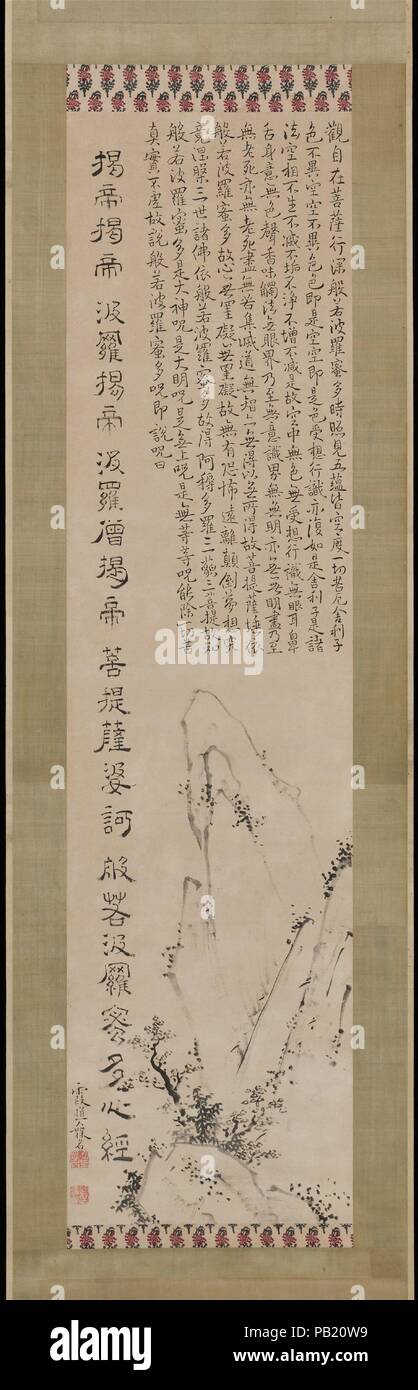 觀自在菩薩行深般若波羅蜜多時照見五蘊皆空度一切苦厄舍利子
色不異空空不異色色即是空空即是色受想行識亦復如是舍利子是諸
法空相不生不滅不垢不淨不增不減是故空中無色無受想行識無眼耳鼻
舌身意無色聲香味觸法無眼界乃至無意識界無無明亦無無明盡乃至
無老死亦無老死盡無苦集滅道無智亦無得以無所得故菩提薩埵依
般若波羅蜜多故心無罣礙無罣礙故無有恐怖遠離顛倒夢想究
竟涅槃三世諸佛依般若波羅蜜多故得阿耨多羅三藐三菩提故知
般若波羅蜜多是大神呪是大明呪是無上呪是無等等呪能除一切苦
真實不虛故說般若波羅蜜多呪即說呪曰
揭帝揭帝波羅揭帝波羅僧揭帝菩提薩婆訶般若波羅蜜多心經
alamy
Image ID: PB20W9
www.alamy.com